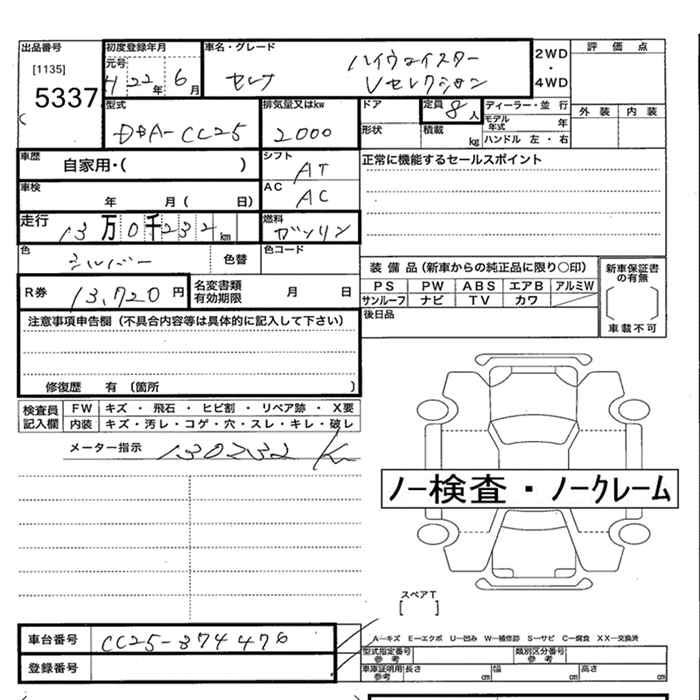 出品番号 [1135] 5337
初度登録年月 元号 H 22年 6月
車名・グレード セレナ ハイウェイスター Vセレクション
2WD ・ 4WD
評価点
外装 内装
型式 DBA-CC25
排気量又はkw 2000
ドア
形状
定員 8人
積載 kg
ディーラー・並行
モデル年式 年
ハンドル 左・右
車歴 自家用・( )
シフト AT
正常に機能するセールスポイント
車検 年 月( 日)
AC AC
走行 13万0千232km
燃料 ガソリン
色 シルバー 色替
色コード
装備品(新車からの純正品に限り○印)
新車保証書の有無
PS PW ABS エアB アルミW
サンルーフ ナビ TV カワ
車載不可
R券 13,720円
名変書類有効期限 月 日
後日品
注意事項申告欄(不具合内容等は具体的に記入して下さい)
修復歴 有 〔箇所 〕
検査員記入欄
FW キズ・飛石・ヒビ割・リペア跡・X要
内装 キズ・汚レ・コゲ・穴・スレ・キレ・破レ
メーター指示 130232 Km
ノー検査・ノークレーム
スペアT
[ ]
車台番号 CC25-374476
登録番号
A―キズ E―エクボ U―凹み W―補修跡 S―サビ C―腐食 XX―交換済
型式指定番号 参考
類別区分番号 参考
車庫証明用 参考 長さ cm 幅 cm 高さ cm